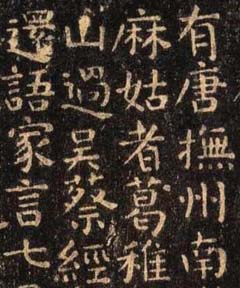 有唐撫州南
麻姑者葛稚
山過吳蔡經
還語家言七